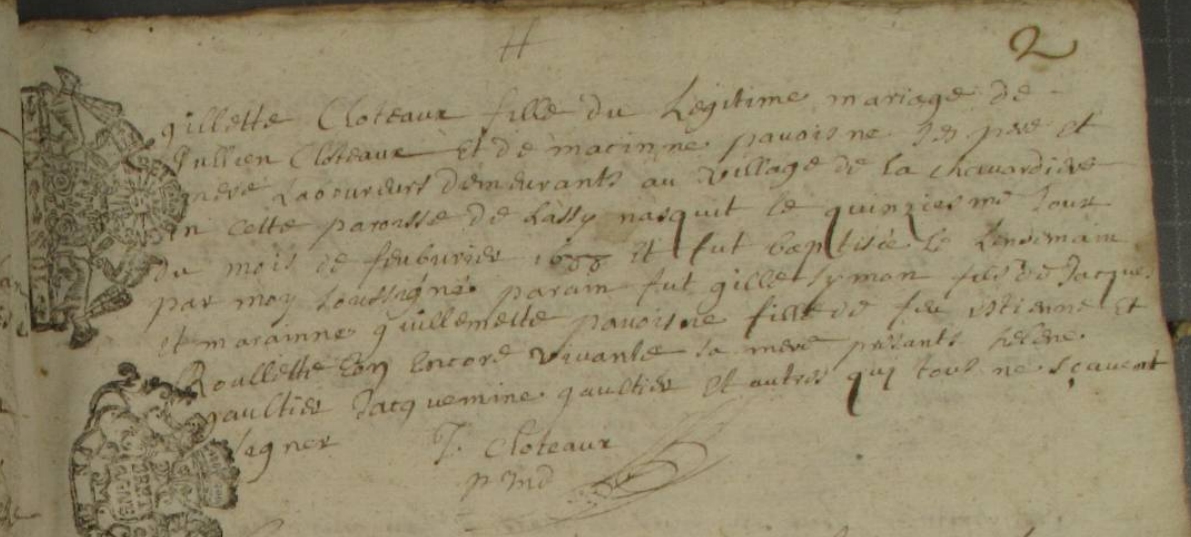 2
gillette Cloteaux fille du Legitime mariage de
Jullien Cloteaux Et de macinne pavoisne ses pere et
mere Laboureurs demeurants au village de la chavardiere
en cette paroisse de Lassy nasquit le quinziesme Jour
du mois de feuburier 1688 et fut baptisée le Lendemain
par moy soussigné param fut gille symon fils de Jacque
et marainne guillemette pavoisne fille de feu estienne et
Roullette Eon Encore vivante sa mere présants helene
gaultier Jacquemine gaultier et autres qui tous ne sçavent
signer J. Cloteaux